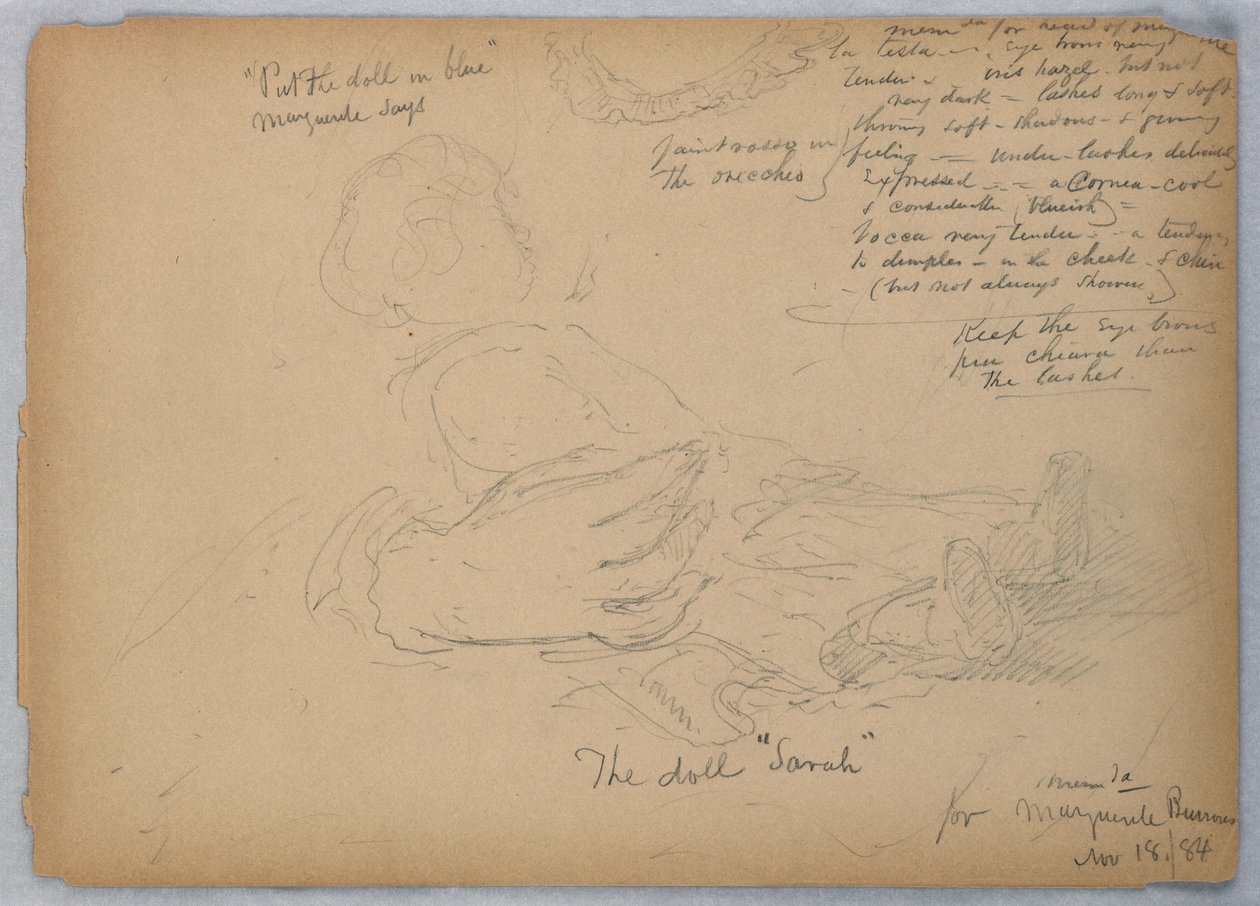 "Put the doll in blue"
Marguerite says
memda for head of Marguerite
la testa — eye brows very
tender — iris hazel — but not
very dark = lashes long & soft
throwing soft - shadows - & giving
feeling — = under-lashes delicately
expressed = = a Cornea - cool
& considerable (blueish) =
bocca very tender = - a tendency
to dimples - in the cheek - & chin
- (but not always shown)
faint rosso in
the orecchio
Keep the eye brows
piu chiara than
the lashes.
The doll "Sarah"
memda
for Marguerite Burrows
Nov 18./84